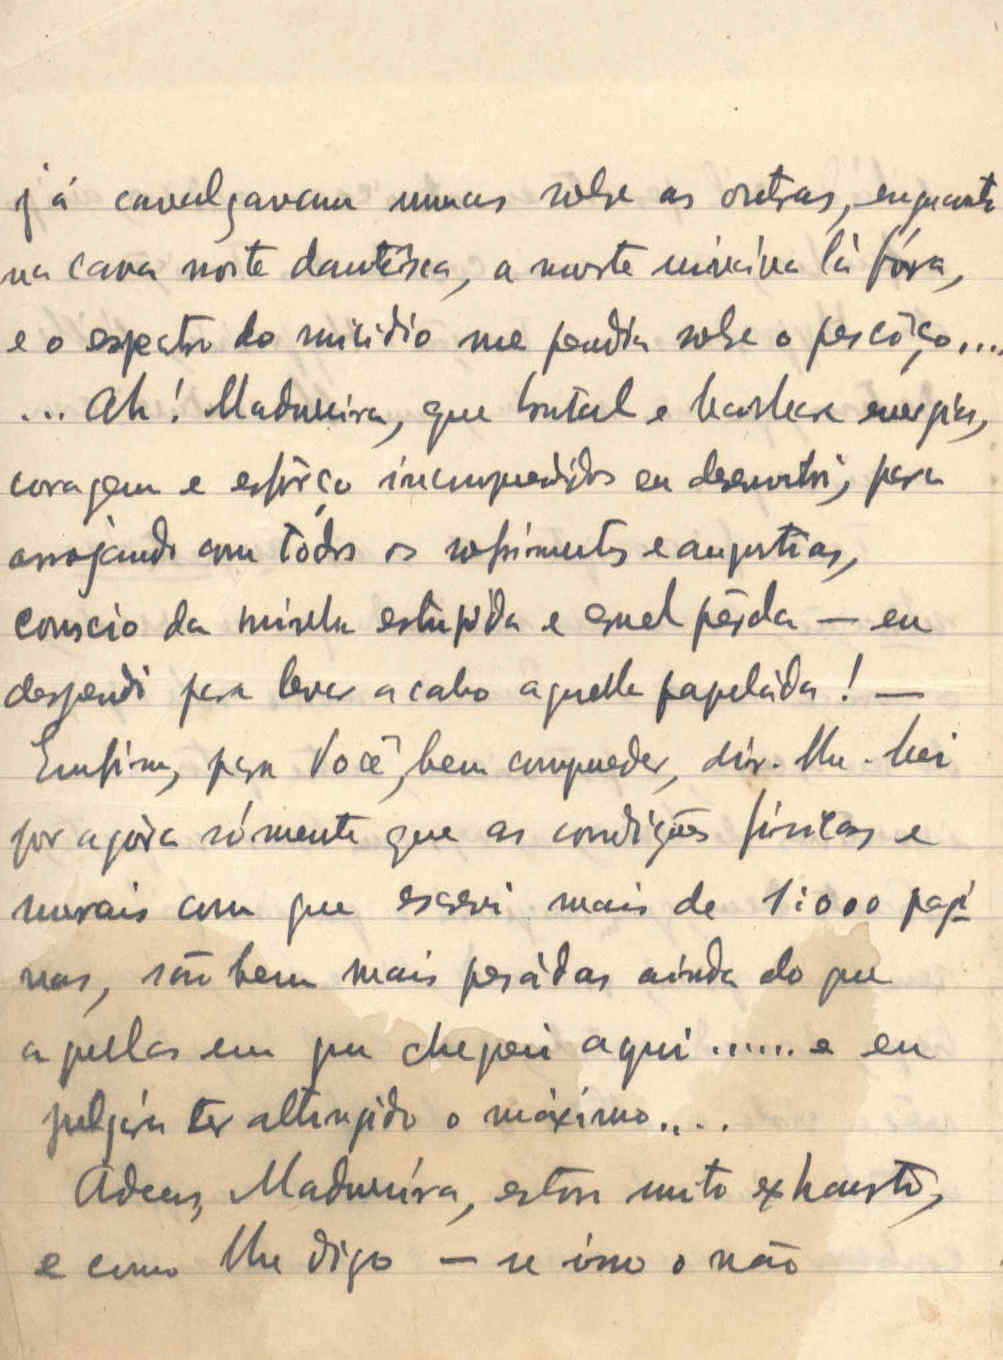 já cavalgavam umas sobre as outras, enquanto
na cava noite dantêsca, a morte uivava lá fóra,
e o espectro do suicidio me pendia sobre o pescôço....
... Ah! Madureira, que brutal e barbara energia,
coragem e esfôrço incomprendidos eu desenvolvi, para
arrojando com tôdos os sofrimentos e angustias,
conscio da minha estupida e cruel pérda — eu
despendi para levar a cabo aquella papeláda! —
Emfim, para Você, bem compreder, dir-lhe-hei
por agóra sómente que as condições físicas e
morais com que escrevi mais de 1:000 pagi-
nas, são bem mais pesádas ainda do que
aquellas em que cheguei aqui ...... e eu
julgára ter attingido o máximo....
Adeus, Madureira, estou muito exhausto,
e como lhe digo — se isso o não